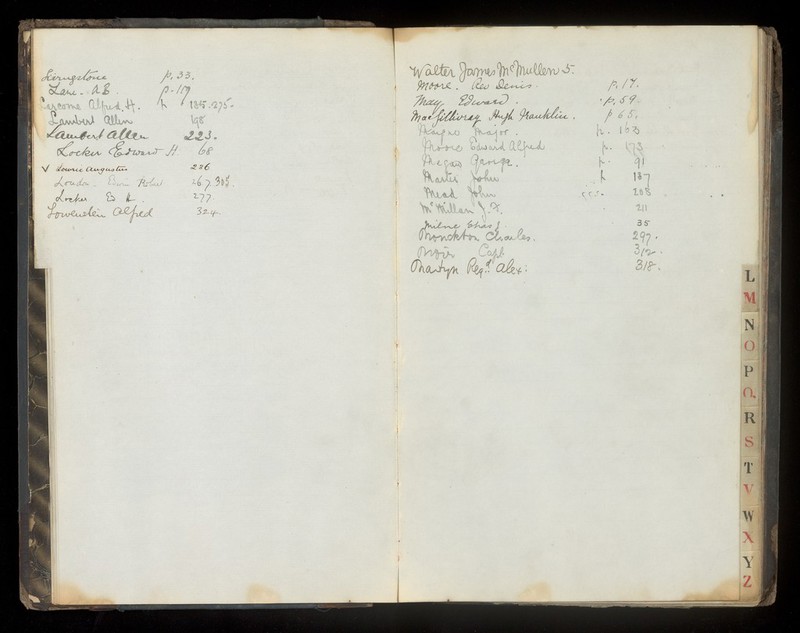 Livingstone p. 33.
Lane. A.E. p. 117
Larcome Alfred. H. p 185. 275.
Lambert Allen 198
Lambert Allen 223.
Locker Edward H 68
v Lowrie Augustus 236
267. 305.
Locker Ed H. 277
Lowenstein Alfred 324.
Walter James McMullen 5.
Moore. Rev Denis. p. 17.
May Edward. p. 59.
MacGillivray Hugh Franklin. p 65.
Magee Major. p. 163
Moore Edward Alfred p. 173
Magee George. p. 91
Martin John. p 187
Mead John 208
McMillan J. F. 211
Milne Chas J. 35
Monckton Charles. 297.
Capt 312.
Martyn Regd. Alex: 318.
L
M
N
O
P
Q
R
S
T
V
W
X
Y
Z